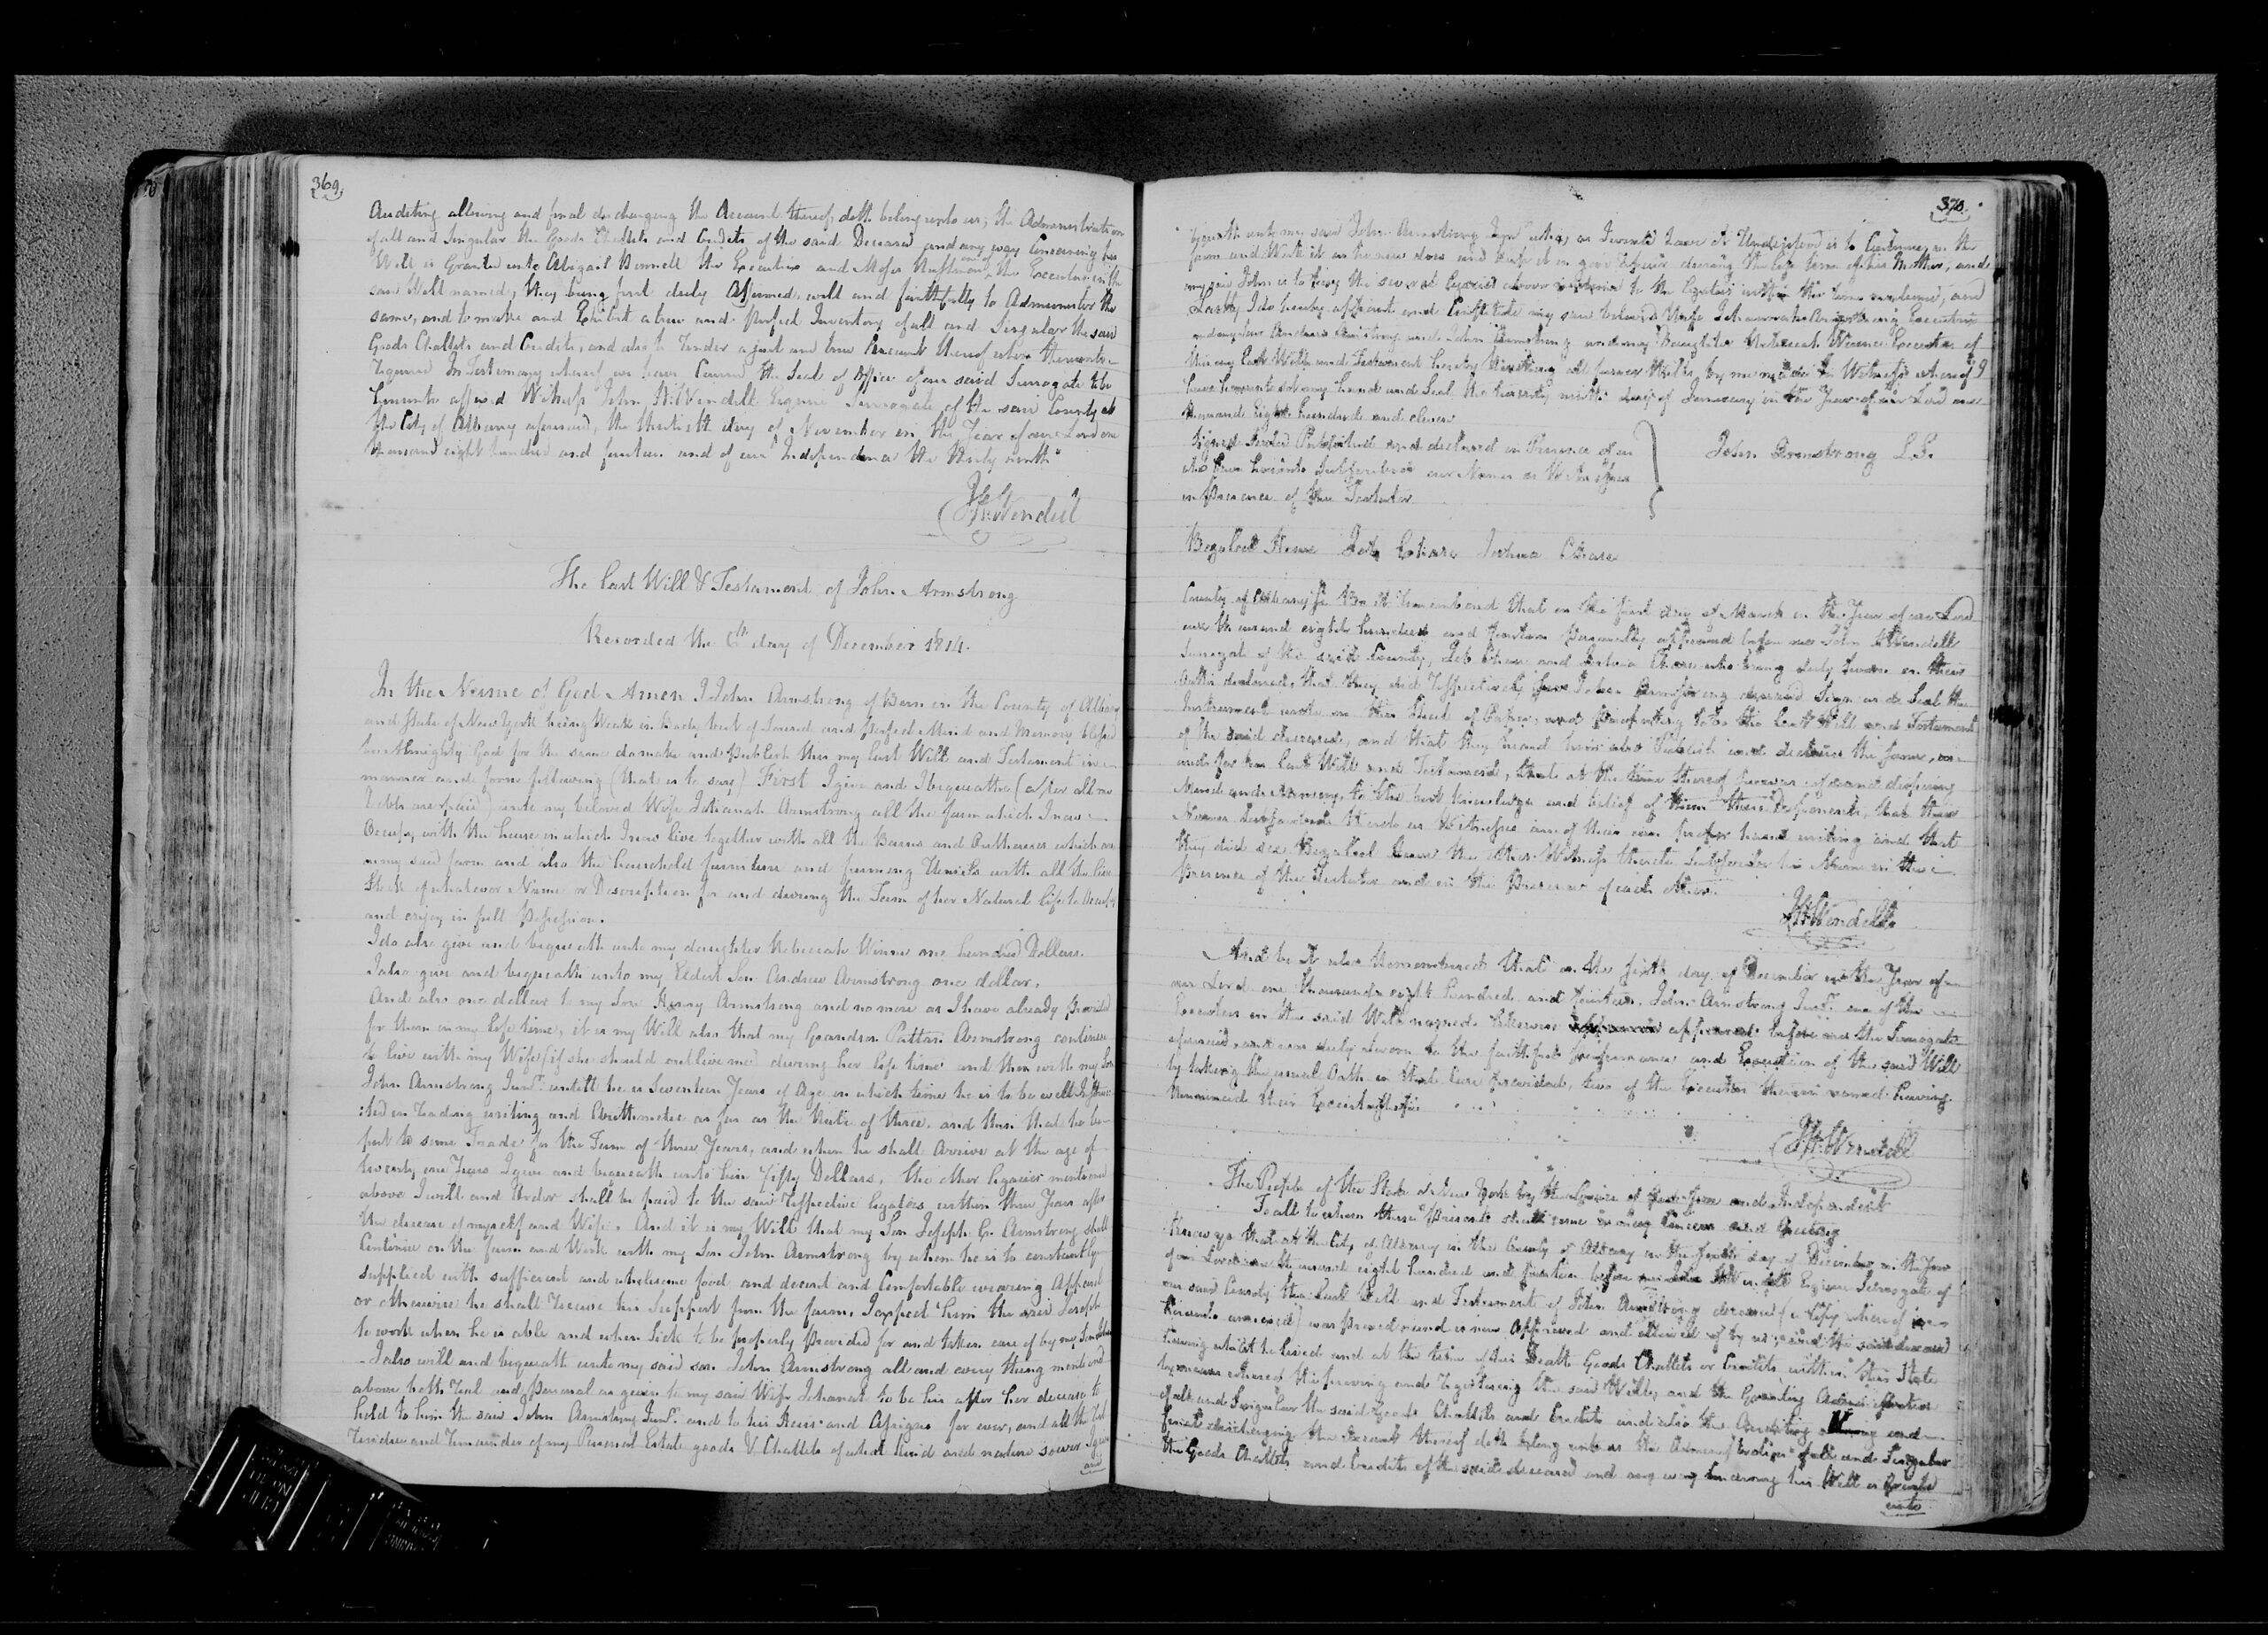 369.
Auditing allowing and final discharging the Account thereof, doth belong unto us; the Administration
of all and Singular the Goods Chattels and Credits of the said Deceased and any way Concerning his
Will is Granted unto Abigail Bunnell the Executrix and Moses Huffman one of the Executors in the
said Will named, they being first duly Affirmed, well and faithfully to Administer the
same, and to make and Exhibit a true and perfect Inventory of all and Singular the said
Goods Chattels and Credits, and also to render a just and true Account thereof when thereunto
required In Testimony whereof we have Caused the Seal of Office of our said Surrogate to be
hereunto affixed Witness John H. Wendell Esquire Surrogate of the said County at
the City of Albany aforesaid, the thirtieth day of November in the Year of our Lord one
thousand eight hundred and fourteen and of our Independence the thirty ninth"
J. H. Wendell
The last Will & Testament of John Armstrong
Recorded the 6th day of December 1814.
In the Name of God Amen I John Armstrong of Bern in the County of Albany
and State of New York being Weak in Body but of Sound and perfect Mind and Memory blessed
be Almighty God for the same do make and Publish this my last Will and Testament in
manner and form following (that is to say) First I give and Bequeathe (after all my
Debts are paid) unto my beloved Wife Johanah Armstrong all the farm which I now
Occupy with the house in which I now live together with all the Barns and Outhouses which are
on my said farm and also the household furniture and farming Utensils with all the live
Stock of whatever Name or Description for and during the Term of her Natural life to Occupy
and enjoy in full Possession.
I do also give and bequeath unto my daughter Rebeccah Winne one hundred Dollars.
I also give and bequeath unto my Eldest Son Andrew Armstrong one dollar.
And also one dollar to my Son Henry Armstrong and no more as I have already provided
for them in my life time, it is my Will also that my Grandson Armstrong continue
to live with my Wife (if she should outlive me) during her life time and then with my Son
John Armstrong Junr. untill he is Seventeen Years of Age in which time he is to be well Instruc
:ted in reading writing and Arithmetic as far as the Rule of three, and then that he be
put to some Trade for the Term of three Years, and when he shall Arrive at the age of
twenty one Years I give and bequeath unto him fifty Dollars, the other legacies mentioned
above I will and Order shall be paid to the said respective legatees within three Years after
the decease of myself and Wife. And it is my Will that my Son Joseph G. Armstrong shall
Continue on the farm and Work with my Son John Armstrong by whom he is to constantly
supplied with sufficient and wholesome food and decent and Comfortable wearing Apparel
or otherwise he shall receive his Support from the farm, I expect him the said Joseph
to work when he is able and when Sick to be properly provided for and taken care of by my Son John
I also will and bequeath unto my said son John Armstrong all and every thing mentioned
above both real and personal as given to my said Wife Johanah to be his after her decease to
hold to him the said John Armstrong Junr. and to his Heirs and Assigns for ever, and all the rest
residue and remainder of my Personal Estate goods & Chattels of what kind and nature soever I give
and
370.
bequeath unto my said John Armstrong Junr who, as I would have it Understood is to Continue on the
farm and Work it as he now does and keep it in good repair during the life time of his Mother, and
my said John is to pay the several legacies above mentioned to the legatees within the time mentioned, and
Lastly I do hereby appoint and Constitute my said beloved Wife Johannah Armstrong Executrix
and my Son Andrew Armstrong and John Armstrong and my Daughter Rebeccah Winne Executors of
this my last Will and Testament hereby revoking all former Wills by me made In Witness whereof I
have hereunto set my hand and Seal the twenty ninth day of January in the Year of our Lord one
thousand Eight hundred and eleven
Signed Sealed Published and declared in Presence of us
who have hereunto Subscribed our Names as Witnesses
in presence of the Testator
John Armstrong L.S.
Bezaleel Howe Job Chase Joshua Chase
County of Albany, ss Be it remembered that on the first day of March in the Year of our Lord
one thousand eight hundred and fourteen Personally appeared before me John H. Wendell
Surrogate of the said County, Job Chase and Joshua Chase who being duly Sworn on their
Oaths declared, that they did respectively see John Armstrong deceased Sign and Seal the
Instrument wrote on this Sheet of Paper, and Purporting to be the last Will and Testament
of the said deceased, and that they heard him also Publish and declare the same, as
and for his last Will and Testament, that at the time thereof he was of sound disposing
Mind and Memory, to the best knowledge and belief of them these Deponents, that their
Names Subscribed thereto as Witnesses are of their own proper hand writing and that
they did see Bezaleel Howe the other Witness thereto, Subscribe his Name in the
Presence of the Testator and in the Presence of each other.
J. H. Wendell
And be it also Remembered that on the sixth day of December in the Year of
our Lord one thousand eight hundred and fourteen. John Armstrong Junr. one of the
Executors in the said Will named likewise appeared before me the Surrogate
aforesaid, and was duly sworn to the faithful performance and Execution of the said Will
by taking the usual Oath in that case provided, two of the Executors therein named having
renounced their Executorship
J. H. Wendell
The People of the State of New York by the Grace of God Free and Independent
To all to whom these Presents shall come or may Concern Send Greeting
Know ye that at the City of Albany in the County of Albany on the sixth day of December in the Year
of our Lord one thousand eight hundred and fourteen before John H. Wendell Esquire Surrogate of
our said County the Last Will and Testament of John Armstrong deceased (a Copy whereof is
hereunto annexed) was proved and is now Approved and allowed of by us; and the said deceased
having whilst he lived and at the time of his Death Goods Chattels or Credits within this State
by means whereof the proving and registering the said Will, and the Granting Administration
of all and Singular the said Goods Chattels and Credits and also the Auditing allowing and
final discharging the Account thereof doth belong unto us the Administration of all and Singular
the Goods Chattels and Credits of the said deceased and any way Concerning his Will is Granted
unto